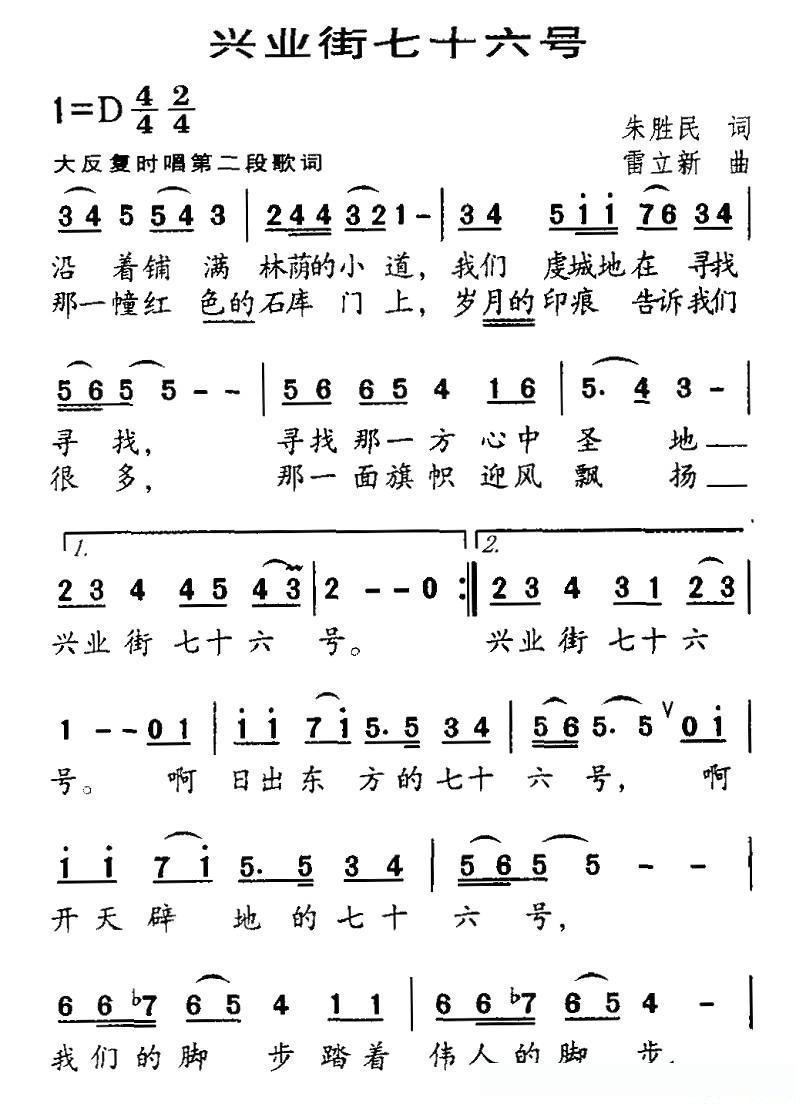 兴业街七十六号
1=D 4/4 2/4
朱胜民 词
大反复时唱第二段歌词
雷立新 曲
3 4 5 5 4 3 | 2 4 4 3 2 1 - | 3 4 5 i i 7 6 3 4 |
沿着铺满林荫的小道，我们虔城地在寻找
那一幢红色的石库门上，岁月的印痕告诉我们
5 6 5 5 - - | 5 6 6 5 4 1 6 | 5. 4 3 - |
寻找，寻找那一方心中圣地
很多，那一面旗帜迎风飘扬
1. 2.
2 3 4 4 5 4 3 | 2 - - 0 :| 2 3 4 3 1 2 3 |
兴业街七十六号。兴业街七十六
1 - - 0 1 | i i 7 i 5. 5 3 4 | 5 6 5. 5 V 0 i |
号。啊日出东方的七十六号，啊
i i 7 i 5. 5 3 4 | 5 6 5 5 - - |
开天辟地的七十六号，
6 6 b7 6 5 4 1 1 | 6 6 b7 6 5 4 - |
我们的脚步踏着伟人的脚步.